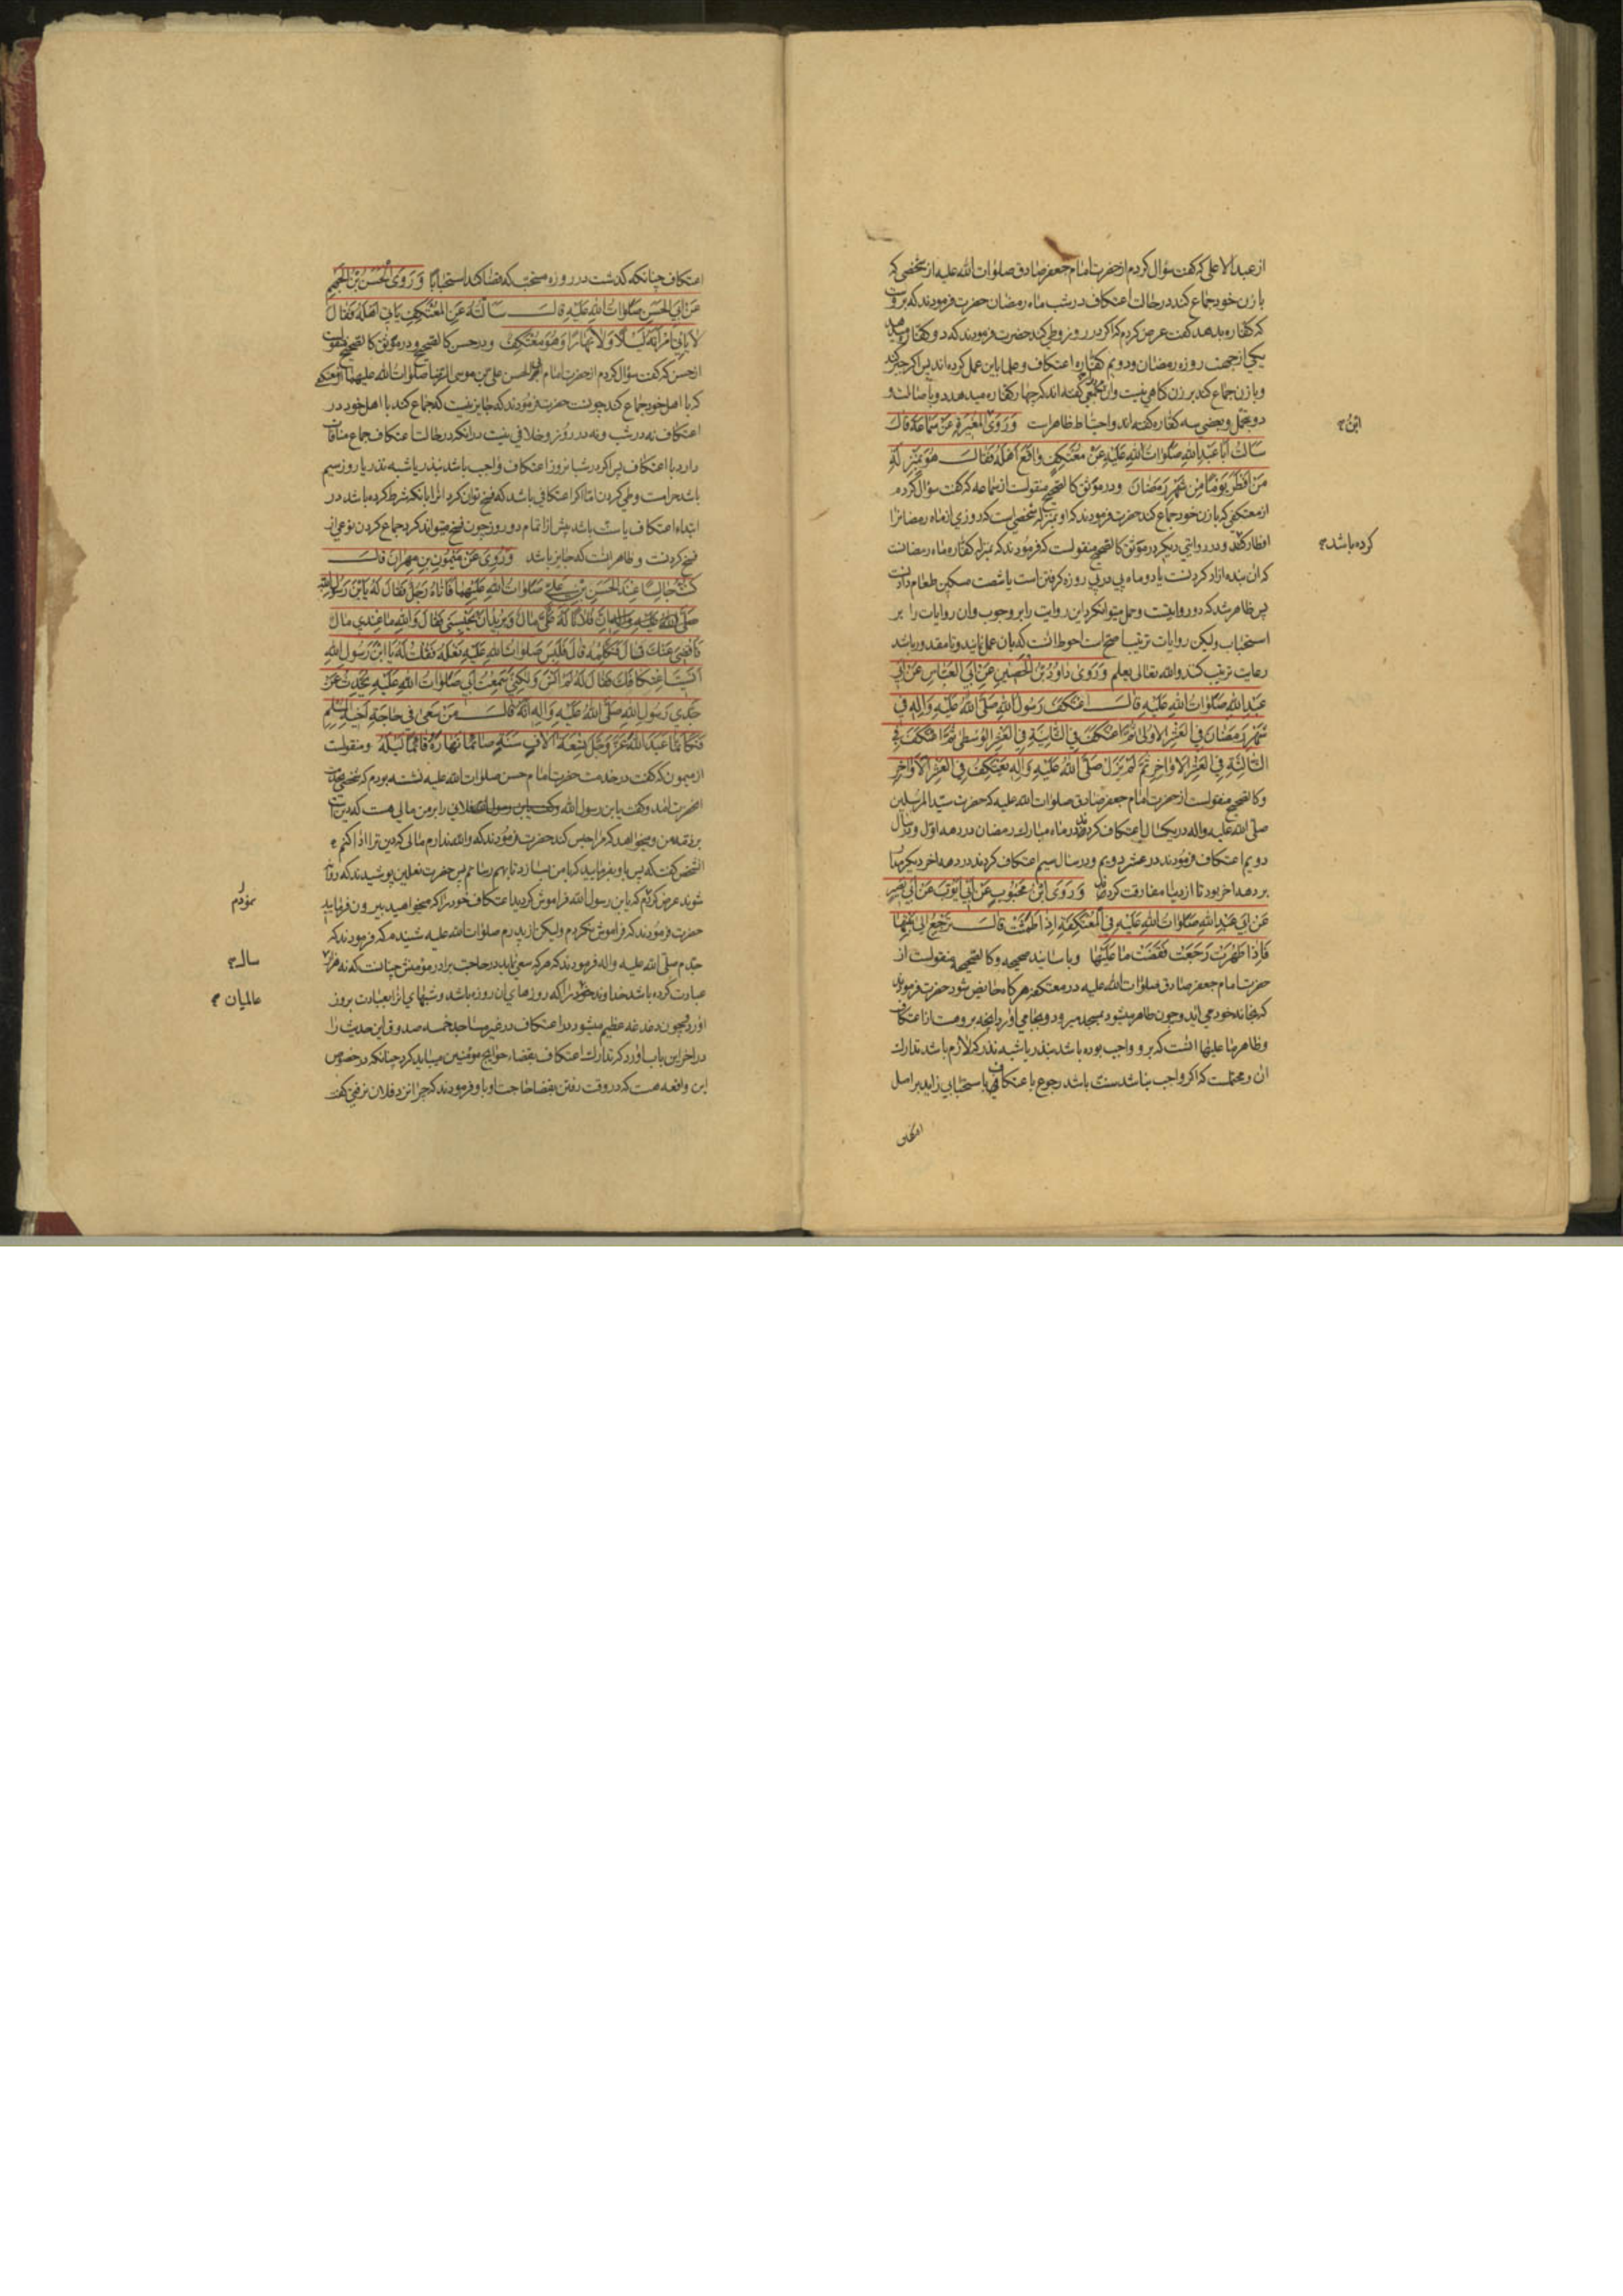 از عبد الاعلی که گفت سؤال کردم از حضرت امام جعفر صادق صلوات الله علیه از شخصی که
با زن خود جماع کند در حالت اعتکاف در شب ماه رمضان حضرت فرمودند که بروست
که کفاره بدهد گفت عرض کردم که اگر در روز وطی کند حضرت فرمودند که دو کفاره میدهد
یکی از جهت روزه رمضان و دویم کفاره اعتکاف و علما باین عمل کرده اند پس اگر جبر کند
و با زن جماع کند بر زن گناهی نیست و گفته اند که چهار کفاره میدهد دو باصالت و
دو بتحمل و بعضی سه کفاره گفته اند و احتیاط ظاهر است وَرَوَی المُغیرَةِ عَن سَمَاعَة قالَ
سَاَلتُ اَبَا عَبدِ اللهِ صَلَواتُ اللهِ عَلَیهِ عَن مُعتَکِفٍ واقَعَ اَهلَهُ فَقالَ هُوَ بِمَنزِلَةِ
مَن اَفطَرَ یَومًا مِن شَهرِ رَمَضانَ و در موثق کالصحیح منقولست از سماعه که گفت سؤال کردم
از معتکفی که با زن خود جماع کند حضرت فرمودند که او بمنزله شخصی است که روزی از ماه رمضانرا
افطار کند و در روایتی دیگر در موثق کالصحیح منقولست که فرمودند که بمنزله کفاره ماه رمضانست
که آن بنده ازاد کردنست یا دو ماه پی در پی روزه گرفتن است یا شصت مسکین طعام دادنست
پس ظاهر شد که دو روایتست و حمل میتوان کرد این روایت را بر وجوب و آن روایات را بر
استحباب ولیکن روایات ترتیب اصح است احوط انست که بان عمل نمایند و تا مقدور باشد
رعایت ترتیب کنند والله تعالی یعلم وَرَوَی داوُدُ بنُ الحُصَینِ عَن اَبِی العَبّاسِ عَن اَبی
عَبدِ اللهِ صَلَواتُ اللهِ عَلَیهِ قالَ اعتَکَفَ رَسُولُ اللهِ صَلَّی اللهُ عَلَیهِ وَالِهِ فِی
شَهرِ رَمَضانَ فِی العَشرِ الاُولی ثُمَّ اعتَکَفَ فِی الثّانِیَةِ فِی العَشرِ الوُسطی ثُمَّ اعتَکَفَ فِی
الثّالِثَةِ فِی العَشرِ الاَواخِرِ ثُمَّ لَم یَزَل صَلَّی اللهُ عَلَیهِ وَالِهِ یَعتَکِفُ فِی العَشرِ الاَواخِرِ
و کالصحیح منقولست از حضرت امام جعفر صادق صلوات الله علیه که حضرت سید المرسلین
صلی الله علیه واله در یکسال اعتکاف کردند در ماه مبارک رمضان در دهه اول و در سال
دویم اعتکاف فرمودند در عشر دویم و در سال سیم اعتکاف کردند در دهه اخر دیگر مدار
بر دهه اخر بود تا از دنیا مفارقت کردند وَرَوَی ابنُ مَحبُوبٍ عَن اَبی اَیُّوبَ عَن اَبی بَصیرٍ
عَن اَبی عَبدِ اللهِ صَلَواتُ اللهِ عَلَیهِ فِی المُعتَکِفَةِ اِذا طَمَثَت قالَ تَرجِعُ اِلی بَیتِها
فَاِذا طَهُرَت رَجَعَت فَقَضَت ما عَلَیها و باسانید صحیحه و کالصحیحه منقولست از
حضرت امام جعفر صادق صلوات الله علیه در معتکفه هرگاه حایض شود حضرت فرمودند
که بخانه خود می اید و چون طاهر میشود بمسجد میرود و بجا می آورد انچه بر وهست از اعتکاف
و ظاهر ما علیها انست که بر و واجب بوده باشد بنذر یا شبه نذر که لازم باشد تدارک
ان و محتملست که اگر واجب نباشد سنت باشد رجوع با عتکاف یا استحبابی زاید بر اصل
اعتکاف
ابن
کرده باشد
اعتکاف چنانکه گذشت در روزه سنت که قضا کند استحبابا وَرَوَی الحَسَنُ بنُ الجَهمِ
عَن اَبِی الحَسَنِ صَلَواتُ اللهِ عَلَیهِ قالَ سَاَلتُهُ عَنِ المُعتَکِفِ یَاتی اَهلَهُ فَقالَ
لا یَاتی امرَاَتَهُ لَیلًا وَلا نَهارًا وَهُوَ مُعتَکِفٌ و در حسن کالصحیح و در موثق کالصحیح منقولست
از حسن که گفت سؤال کردم از حضرت امام ابو الحسن علی بن موسی الرضا صلوات الله علیهما از معتکفی
که با اهل خود جماع کند چونست حضرت فرمودند که جایز نیست که جماع کند با اهل خود در
اعتکاف نه در شب و نه در روز و خلافی نیست در انکه در حالت اعتکاف جماع منافات
دارد با اعتکاف پس اگر در شبانروز اعتکاف واجب باشد بنذر یا شبه نذر یا روز سیم
باشد حرامست وطی کردن اما اگر اعتکافی باشد که فسخ توان کرد انرا بانکه شرط کرده باشد در
ابتداء اعتکاف یا سنت باشد پیش از اتمام دو روز چون فسخ میتواند کرد جماع کردن نوعی از
فسخ کردنست و ظاهر انست که جایز باشد وَرُوِیَ عَن مَیمُونِ بنِ مِهرانَ قالَ
کُنتُ جالِسًا عِندَ الحَسَنِ بنِ عَلِیٍّ صَلَواتُ اللهِ عَلَیهِما فَاَتاهُ رَجُلٌ فَقالَ لَهُ یَابنَ رَسُولِ اللهِ
صَلَّی اللهُ عَلَیهِ وَالِهِ اِنَّ فُلانًا لَهُ عَلَیَّ مالٌ وَیُریدُ اَن یَحبِسَنی فَقالَ وَاللهِ ما عِندی مالٌ
فَاَقضِیَ عَنکَ قالَ فَکَلِّمهُ قالَ فَلَبِسَ صَلَواتُ اللهِ عَلَیهِ نَعلَهُ فَقُلتُ لَهُ یَا ابنَ رَسُولِ اللهِ
اَنَسیتَ اعتِکافَکَ فَقالَ لَهُ لَم اَنسَ وَلکِنّی سَمِعتُ اَبی صَلَواتُ اللهِ عَلَیهِ یُحَدِّثُ عَن
جَدّی رَسُولِ اللهِ صَلَّی اللهُ عَلَیهِ وَالِهِ اَنَّهُ قالَ مَن سَعی فی حاجَةِ اَخیهِ المُسلِمِ
فَکَاَنَّما عَبَدَ اللهَ عَزَّ وَجَلَّ تِسعَةَ الافِ سَنَةٍ صائِمًا نَهارَهُ قائِمًا لَیلَهُ و منقولست
از میمون که گفت در خدمت حضرت امام حسن صلوات الله علیه نشسته بودم که شخصی بخدمت
انحضرت امد و گفت یابن رسول الله فلانی را بر من مالی هست که دین است
بر ذمه من و میخواهد که مرا حبس کند حضرت فرمودند که والله ندارم مالی که دین ترا ادا کنم
الشخص گفت که پس باو بفرمایید که با من بسازد تا بهم رسانم پس حضرت نعلین پوشیدند که روانه
شوند عرض کردم که یابن رسول الله فراموش کردید اعتکاف خود را که میخواهید بیرون فرمایید
حضرت فرمودند که فراموش نکردم ولیکن از پدرم صلوات الله علیه شنیدم که فرمودند که
جدم صلی الله علیه واله فرمودند که هر که سعی نماید در حاجت برادر مؤمنش چنانست که نه هزار
عبادت کرده باشد خداوند خود را که روزهای ان روزه باشد و شبهای انرا بعبادت بروز
اورد و چون دغدغه عظیم میشود در اعتکاف در غیر مساجد خمسه صدوق این حدیث را
در اخر این باب اورد که تدارک اعتکاف بقضاء حوایج مؤمنین میباید کرد چنانکه در خصوص
این واقعه هست که در وقت رفتن بقضا حاجت او باو فرمودند که چرا نزد فلان نرفتی گفت
نمودم
سال
عالمیان